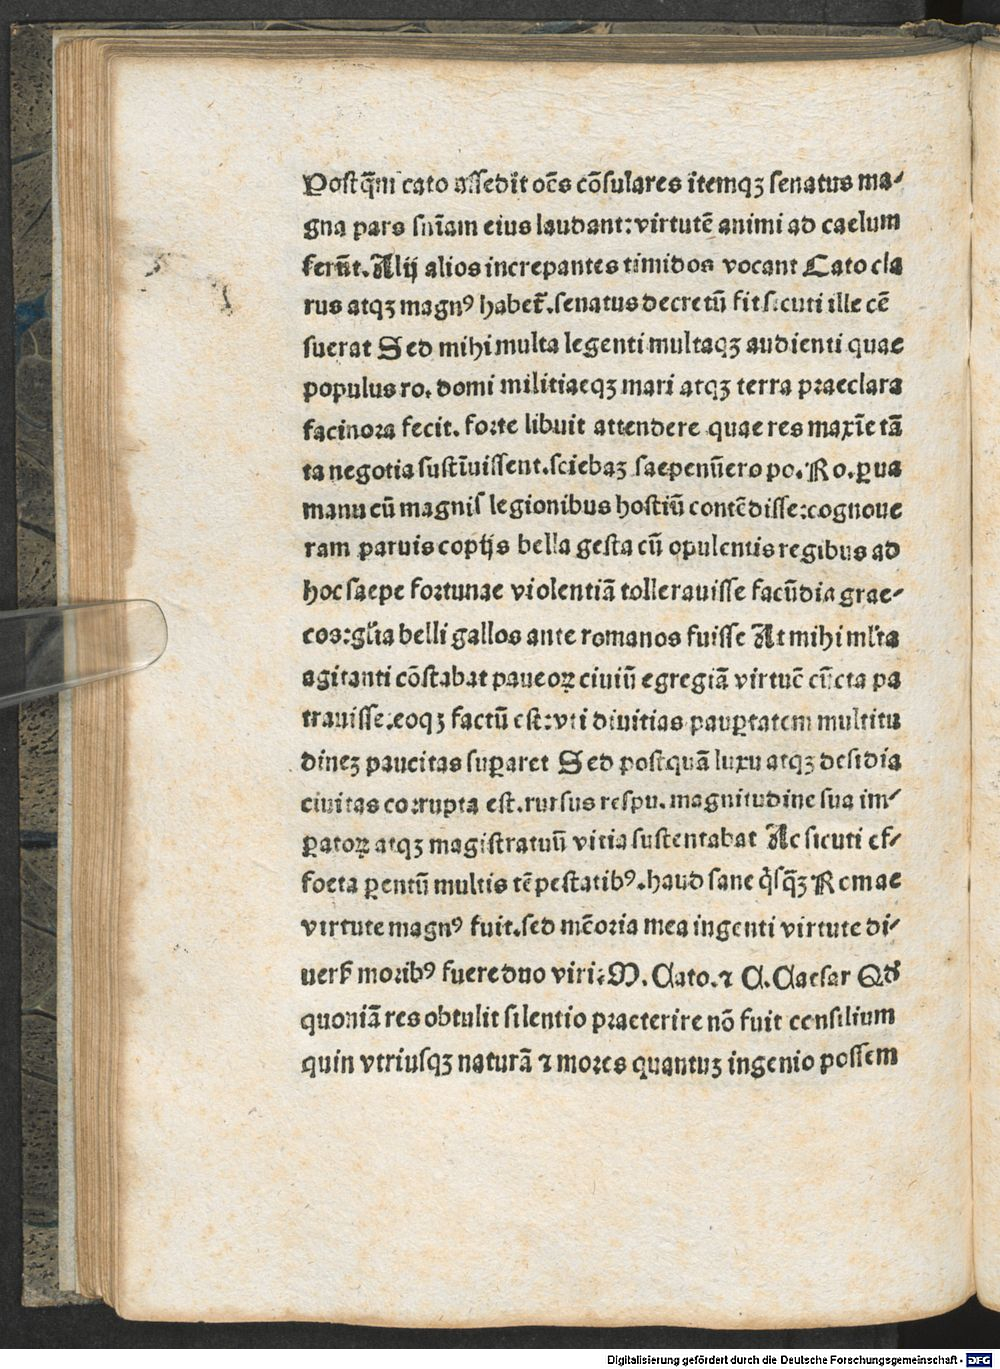 Postq̃m cato assedit oẽs cõsulares itemqꝫ senatus ma⸗
gna pars sñiam eius laudant: virtutẽ animi ad caelum
ferũt. Alij alios increpantes timidos vocant Cato cla
rus atqꝫ magnꝰ habet̃. senatus decretũ fit sicuti ille cẽ
suerat Sed mihi multa legenti multaqꝫ audienti quae
populus ro. domi militiaeqꝫ mari atqꝫ terra praeclara
facinora fecit. forte libuit attendere quae res maxĩe tã
ta negotia sustĩuissent. sciebaꝫ saepenũero po. Ro. ꝑua
manu cũ magnis legionibus hostiũ contẽdisse: cognoue
ram paruis copijs bella gesta cũ opulentis regibus ad
hoc saepe fortunae violentiã tollerauisse facũdia grae⸗
cos: gl̃ia belli gallos ante romanos fuisse At mihi ml̃ta
agitanti cõstabat paucoꝝ ciuiũ egregiã virtutẽ cũcta pa
trauisse. eoqꝫ factũ est: vti diuitias pauꝑtatem multitu
dineꝫ paucitas suꝑaret Sed postquã luxu atqꝫ desidia
ciuitas corrupta est. rursus respu. magnitudine sua im⸗
ꝑatoꝝ atqꝫ magistratuũ vitia sustentabat Ac sicuti ef⸗
foeta ꝑentũ multis tẽpestatibꝰ. haud sane q̃sq̃ꝫ Romae
virtute magnꝰ fuit. sed mẽoria mea ingenti virtute di⸗
uersꝭ moribꝰ fuere duo viri: M. Cato. ⁊ C. Caesar Qđ
quoniã res obtulit silentio praeterire nõ fuit consilium
quin vtriusqꝫ naturã ⁊ mores quantuꝫ ingenio possem
Digitalisierung gefördert durch die Deutsche Forschungsgemeinschaft - DFG